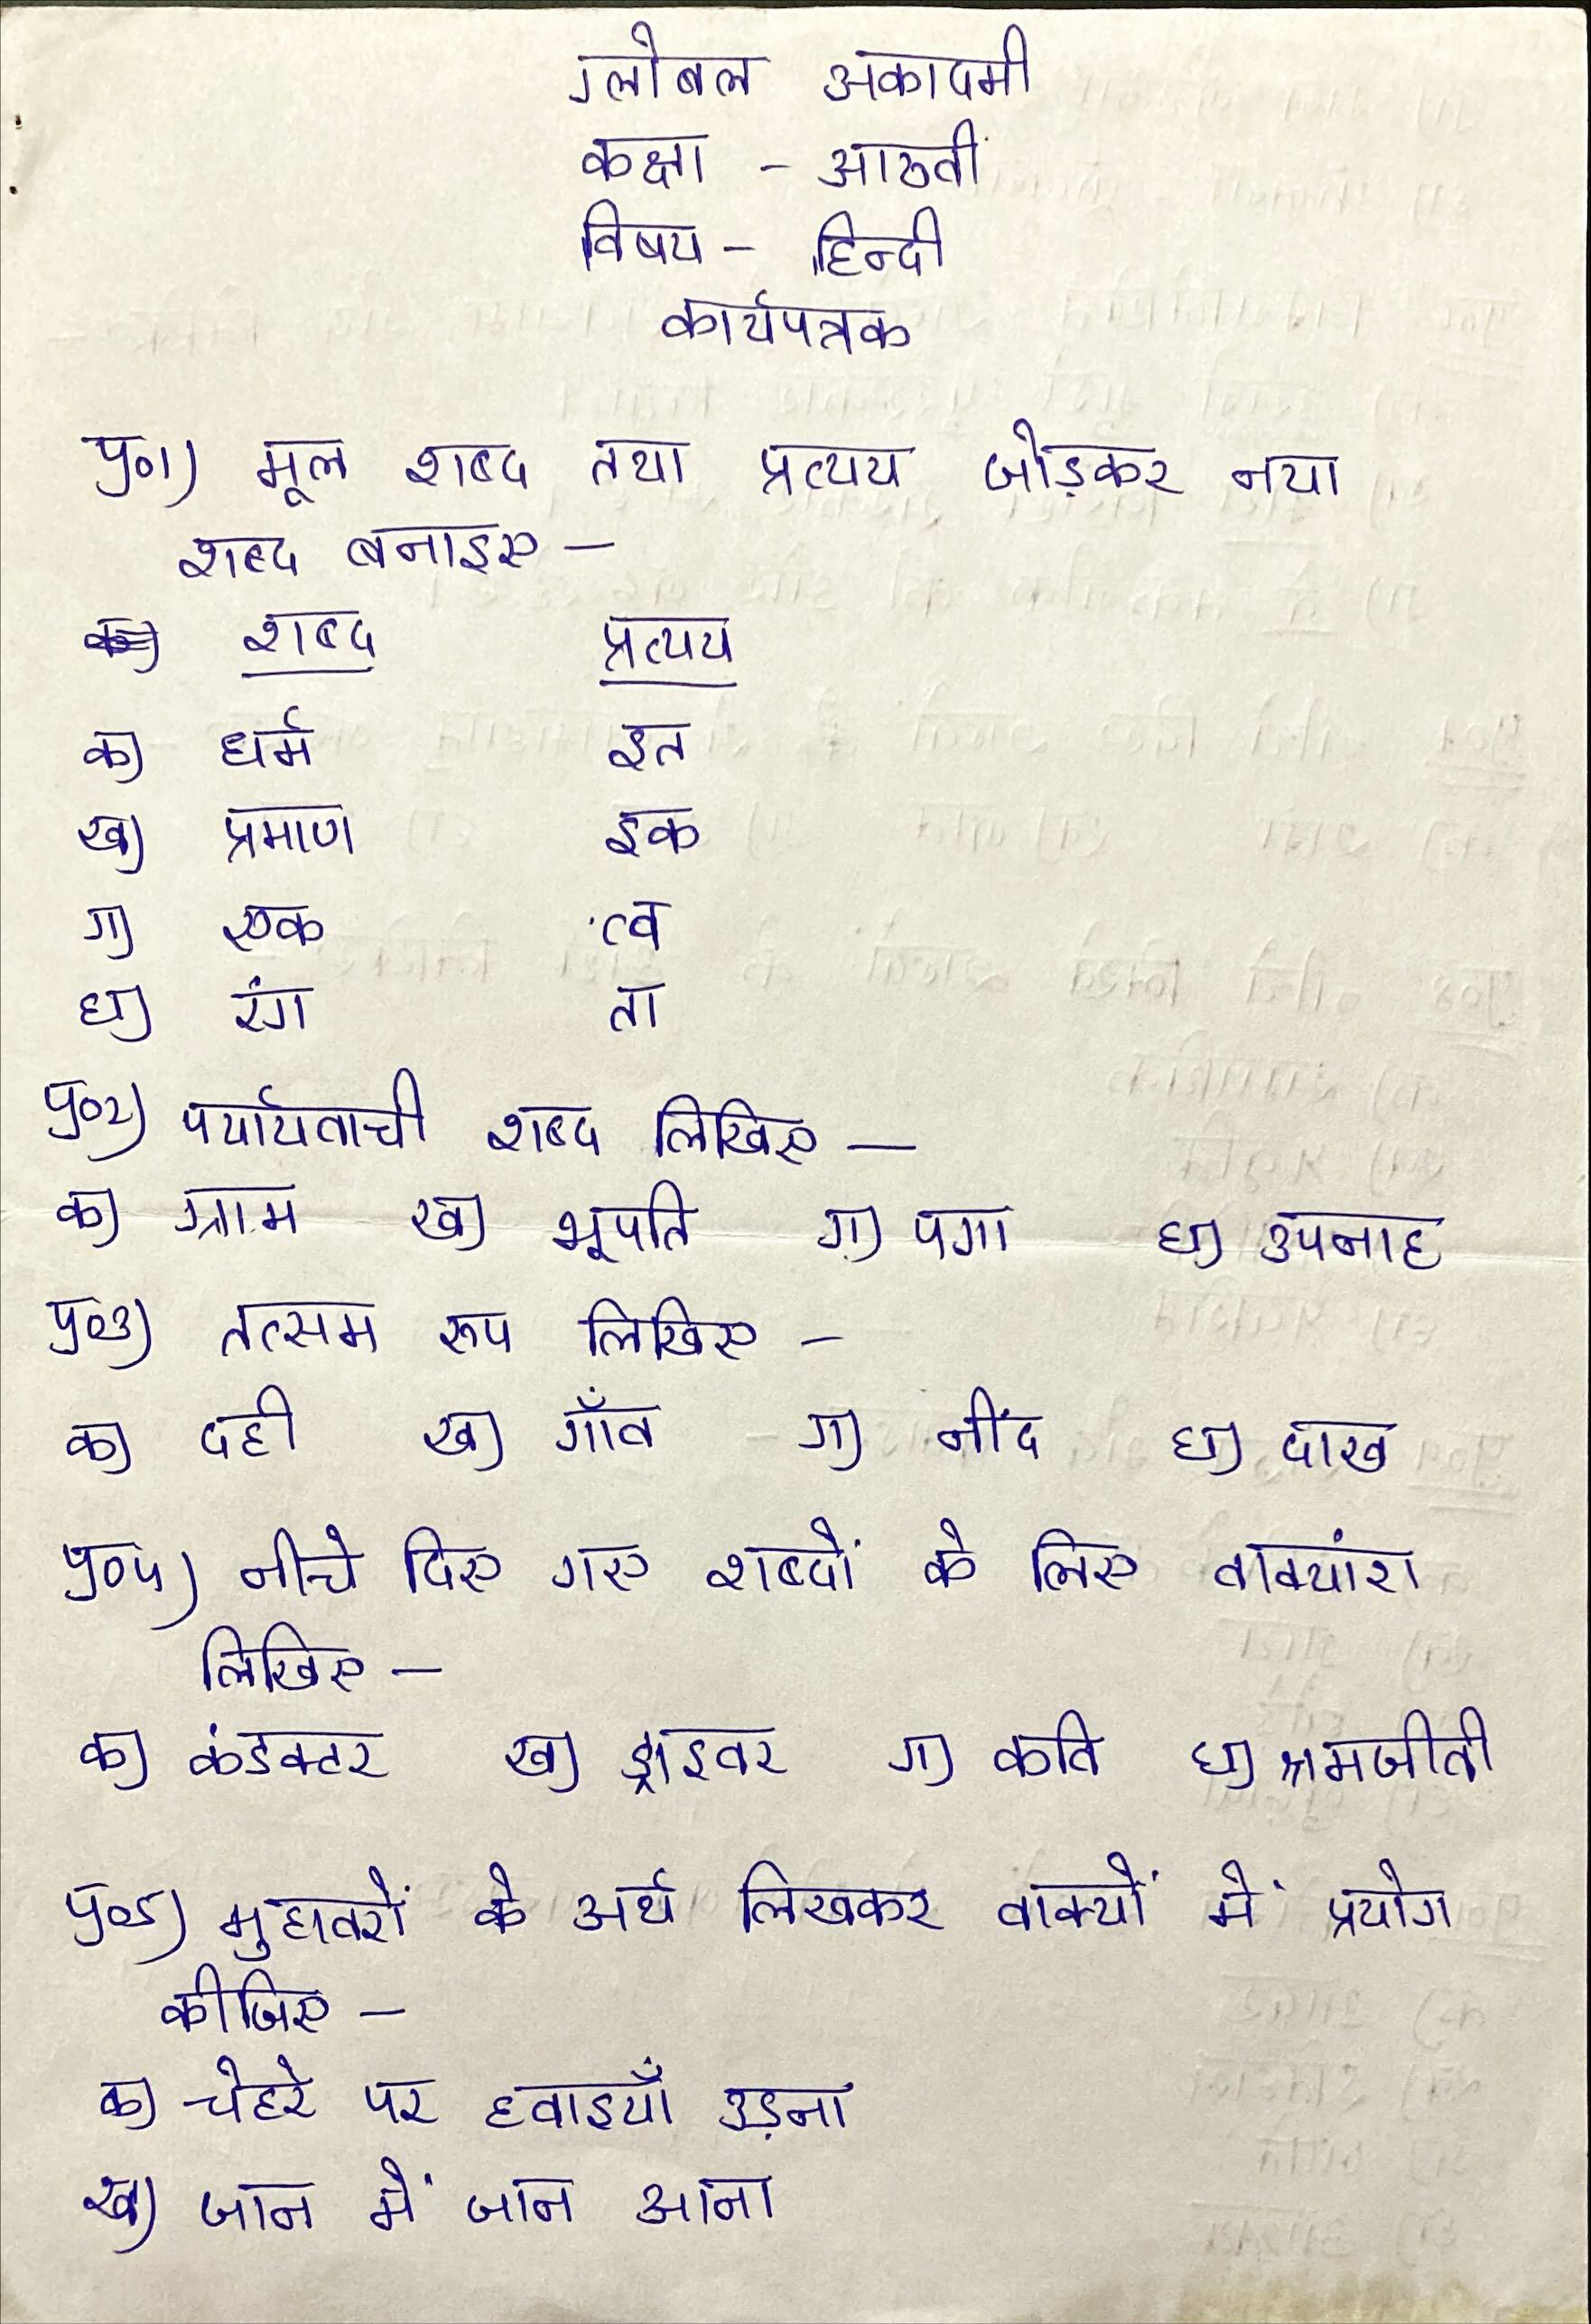 ग्लोबल अकादमी
कक्षा - आठवीं
विषय - हिन्दी
कार्यपत्रक
प्र०1) मूल शब्द तथा प्रत्यय जोड़कर नया
शब्द बनाइए —
शब्द प्रत्यय
क) धर्म इत
ख) प्रमाण इक
ग) एक त्व
घ) रंग ता
प्र०2) पर्यायवाची शब्द लिखिए —
क) ग्राम ख) भूपति ग) पगा घ) उपनाह
प्र०3) तत्सम रूप लिखिए -
क) दही ख) गाँव ग) नींद घ) दाख
प्र०4) नीचे दिए गए शब्दों के लिए वाक्यांश
लिखिए —
क) कंडक्टर ख) ड्राइवर ग) कवि घ) श्रमजीवी
प्र०5) मुहावरों के अर्थ लिखकर वाक्यों में प्रयोग
कीजिए —
क) चेहरे पर हवाइयाँ उड़ना
ख) जान में जान आना